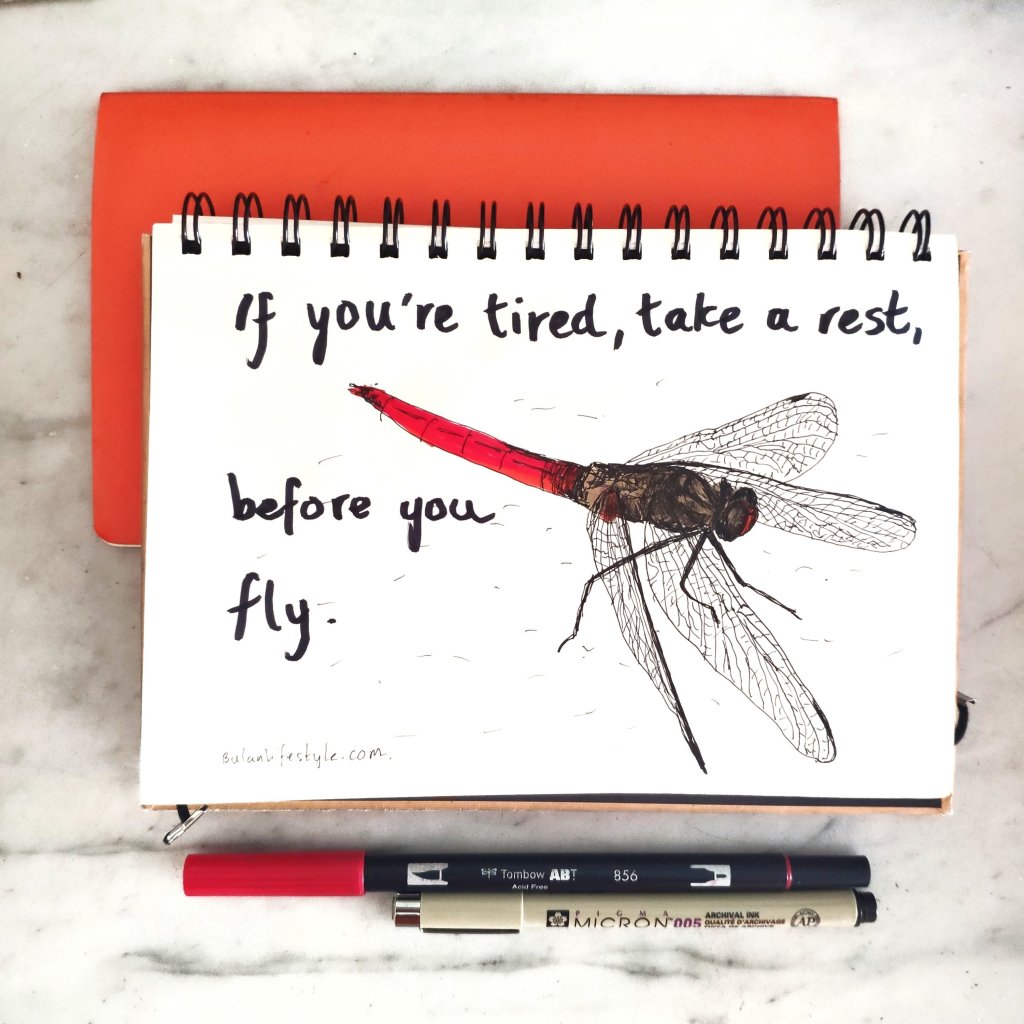 If you're tired, take a rest,
before you
fly.
Bulanlifestyle.com.
Tombow ABT 856
Acid Free
PIGMA
MICRON 005 ARCHIVAL INK
QUALITÉ D'ARCHIVAGE
AP